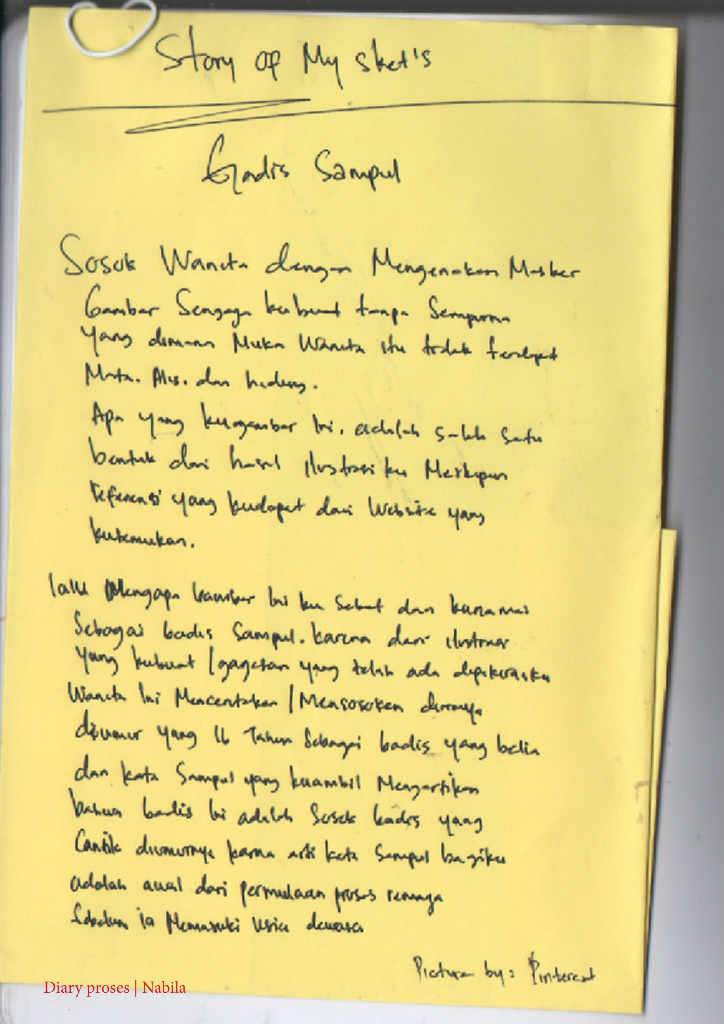 Story of My sket's
Gadis Sampul
Sosok Wanita dengan Mengenakan Masker
Gambar Sengaga kubuat tanpa Sempurna
yang dimana Muka Wanita itu tidak terdapat
Mata. Alis. dan hidung.
Apa yang kugambar Ini. adalah salah satu
bentuk dari hasil ilustrasiku Meskipun
referensi yang kudapat dari Website yang
kutemukan.
lalu Mengapa Gambar Ini ku Sebut dan kunamai
Sebagai Gadis Sampul. karena dari ilustrasi
yang kubuat / gagasan yang telah ada dipikiranku
Wanita Ini Menceritakan / Mensosokan dirinya
diumur yang 16 Tahun Sebagai Gadis yang belia
dan kata Sampul yang kuambil Mengartikan
bahwa Gadis Ini adalah Sosok Gadis yang
Cantik diumurnya karna arti kata Sampul bagiku
adalah awal dari permulaan proses remaga
Sebelum ia Memasuki Usia dewasa
Picture by: Pinterest
Diary proses | Nabila